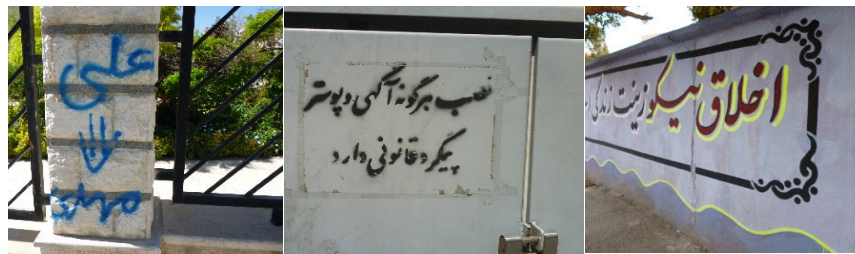 علی
مهدی
نصب هرگونه آگهی و پوستر
پیگرد قانونی دارد
اخلاق نیکو زینت زندگی